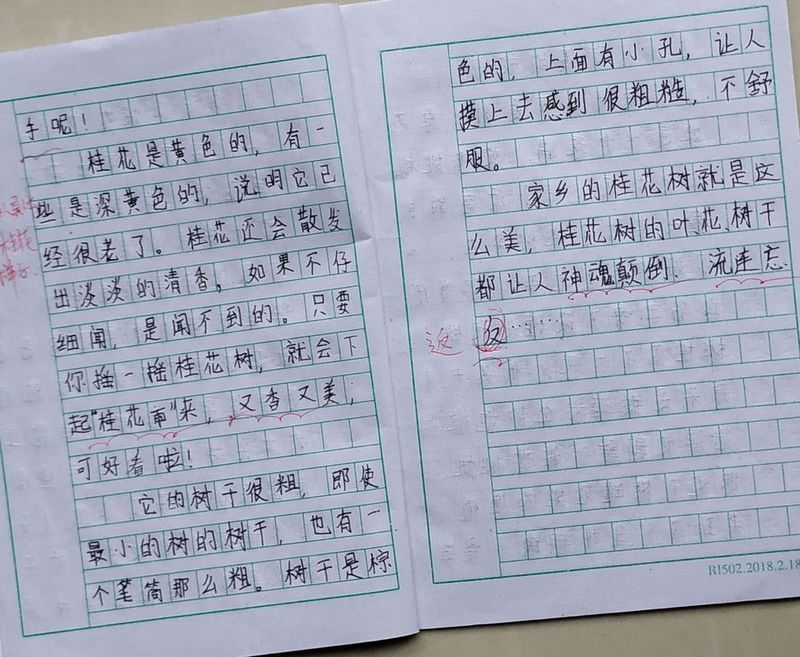 手呢！
桂花是黄色的，有一
些是深黄色的，说明它已
经很老了。桂花还会散发
出淡淡的清香，如果不仔
细闻，是闻不到的。只要
你摇一摇桂花树，就会下
起“桂花雨”来，又香又美，
可好看啦！
它的树干很粗，即使
最小的树的树干，也有一
个笔筒那么粗。树干是棕
色的，上面有小孔，让人
摸上去感到很粗糙，不舒
服。
家乡的桂花树就是这
么美，桂花树的叶、花、树干
都让人神魂颠倒、流连忘
返 反……
R1502.2018.2.18